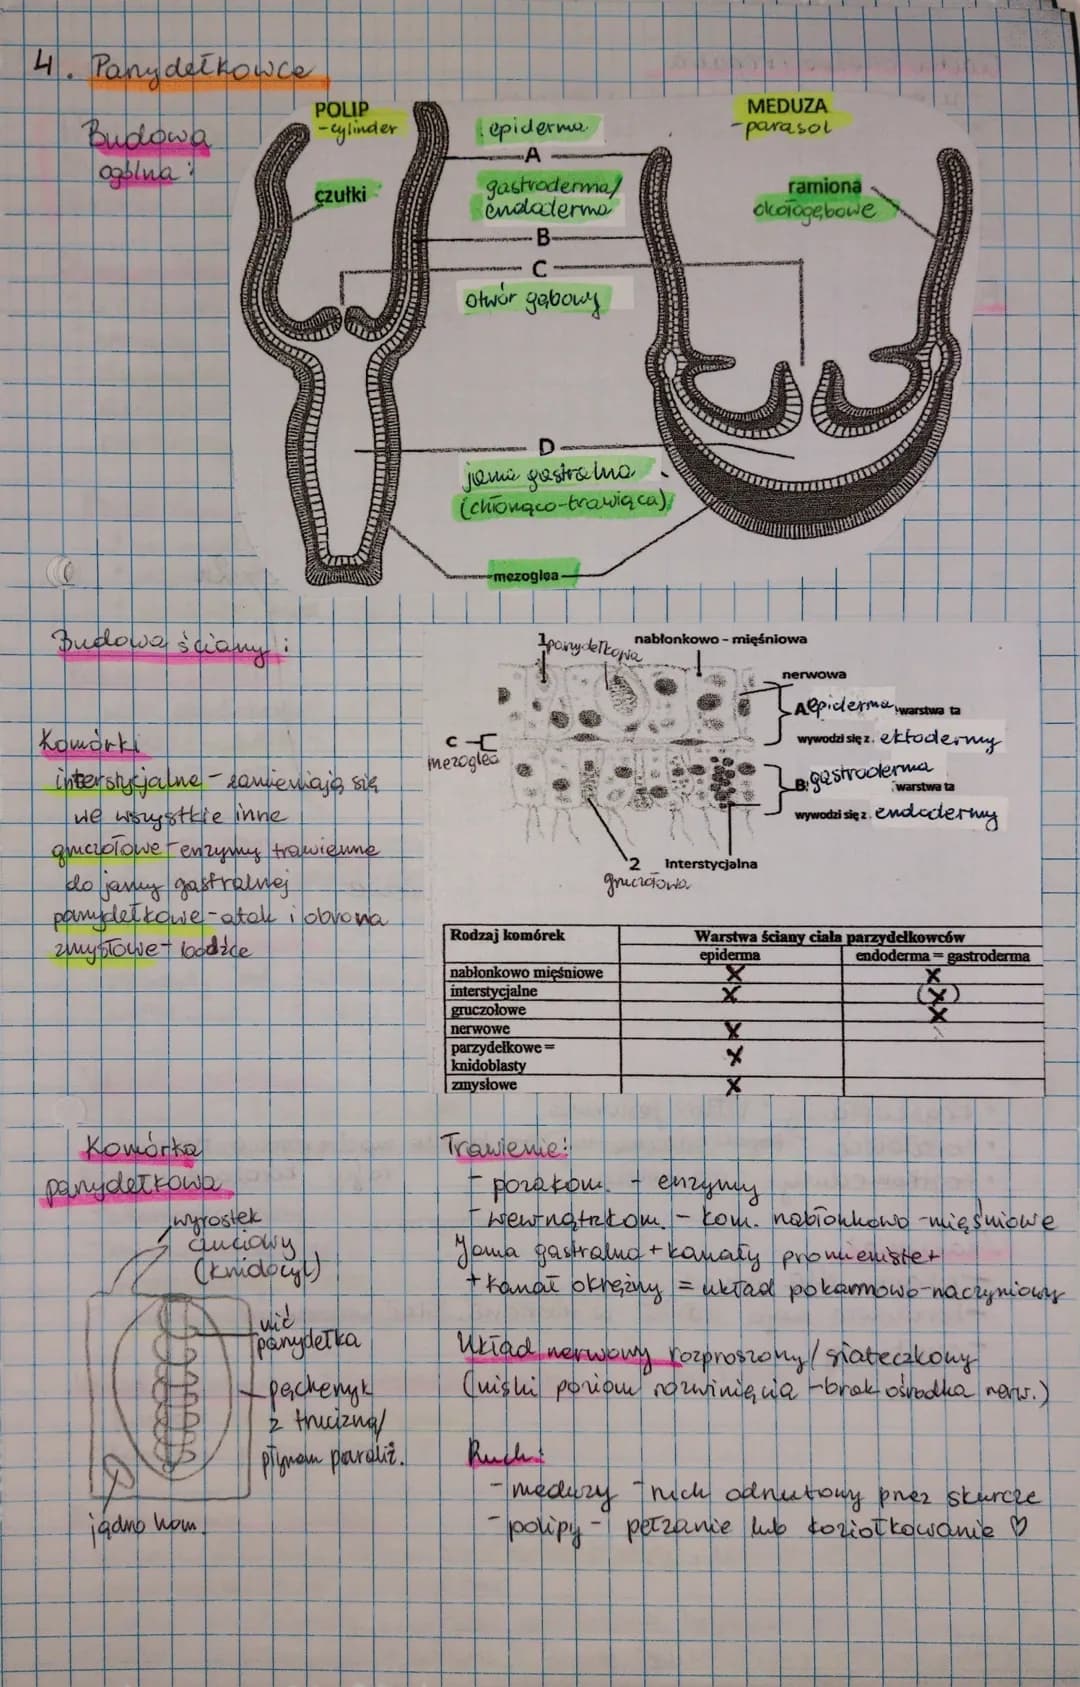 4. Parzydełkowce
Budowa
ogólna:
POLIP
-cylinder
czułki
epiderma
A
gastroderma/
endoderma
B
C
otwór gębowy
D
jama gastralna
(chłonąco-trawiąca)
mezoglea
MEDUZA
-parasol
ramiona
okołogębowe
Budowa ściany:
Komórki
interstycjalne - zamieniają się
we wszystkie inne
gruczołowe - enzymy trawienne
do jamy gastralnej
parzydełkowe - atak i obrona
zmysłowe - bodźce
1 parzydełkowa
nabłonkowo - mięśniowa
nerwowa
A. epiderma, warstwa ta
wywodzi się z. ektodermy
C
mezoglea
B. gastroderma
warstwa ta
wywodzi się z. endodermy
2 Interstycjalna
gruczołowa
Rodzaj komórek Warstwa ściany ciała parzydełkowców
epiderma endoderma = gastroderma
nabłonkowo mięśniowe X X
interstycjalne X (X)
gruczołowe X
nerwowe X
parzydełkowe =
knidoblasty X
zmysłowe X
Komórka
parzydełkowa
wyrostek
czuciowy
(knidocyl)
nić
parzydełka
pęcherzyk
z trucizną/
płynem paraliż.
jądro kom.
Trawienie:
- pozakom. - enzymy
- wewnątrzkom. - kom. nabłonkowo-mięśniowe
Jama gastralna + kanały promieniste +
+ kanał okrężny = układ pokarmowo-naczyniowy
Układ nerwowy rozproszony/siateczkowy
(niski poziom rozwinięcia - brak ośrodka nerw.)
Ruch:
- meduzy - ruch odrzutowy przez skurcze
- polipy - pełzanie lub koziołkowanie ♡